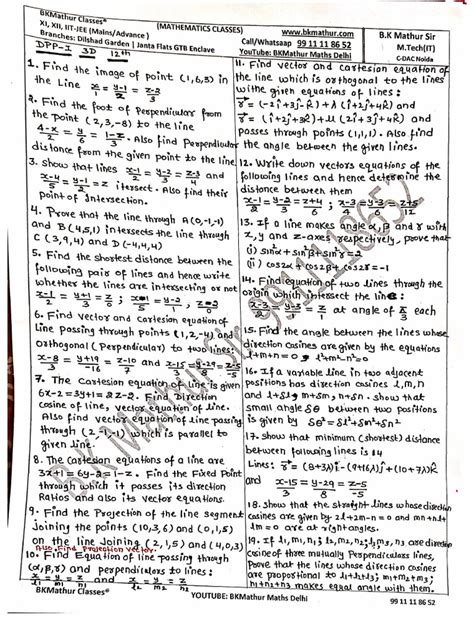 BKMathur Classes®
XI, XII, IIT-JEE (Mains/Advance)
Branches: Dilshad Garden | Janta Flats GTB Enclave
(MATHEMATICS CLASSES)
Call/Whatsaap
www.bkmathur.com
99 11 11 86 52
YouTube: BKMathur Maths Delhi
B.K Mathur Sir
M.Tech(IT)
C-DAC Noida
DPP-I 3D 12th
1. Find the image of point (1,6,3) in
the Line x/1 = y-1/2 = z-2/3
2. Find the foot of Perpendicular from
the point (2,3,-8) to the line
4-x/2 = y/6 = 1-z/3. Also find Perpendicular
distance from the given point to the line
3. Show that lines x-1/2 = y-2/3 = z-3/4 and
x-4/5 = y-1/2 = z itersect. Also find their
point of intersection.
4. Prove that the line through A(0,-1,-1)
and B(4,5,1) intersects the line through
C(3,9,4) and D(-4,4,4)
5. Find the shortest distance between the
following pair of lines and hence write
whether the lines are intersecting or not
x-1/2 = y+1/3 = z; x+1/5 = y-2/1, z/0
6. Find vector and cartesian equation of
line passing through points (1,2,-4) and
orthogonal (Perpendicular) to two lines:
x-8/3 = y+19/-16 = z-10/7 and x-15/3 = y-29/8 = z-5/-5
7. The cartesian equation of line is given
6x-2=3y+1=2z-2. Find Direction
cosine of line, vector equation of line.
Also find vector equation of line passing
through (2,-1,-1) which is parallel to
given line.
8. The cartesian equations of a line are
3x+1=6y-2=1-z. Find the Fixed Point
through which it passes its direction
Ratios and also its vector equations.
9. Find the Projection of the line segment
joining the points (10,3,6) and (0,1,5)
on the line Joining (2,1,5) and (4,0,3)
Also, Find Projection vector.
10. Find Equation of line passing through
(α,β,γ) and perpendiculars to lines:
x/l1 = y/m1 = z/n1 and x/l2 = y/m2 = z/n2
11. Find vector and cartesian equation of
the line which is orthogonal to the lines
withe given equations of lines:
r = (-2i+3j-k) + λ(i+2j+4k) and
r = (i+2j+3k) + μ(2i+3j+4k) and
passes through points (1,1,1). Also find
the angle between the given lines.
12. Write down vectors equations of the
following lines and hence determine the
distance between them
x-1/2 = y-2/3 = z+4/6; x-3/4 = y-3/6 = z+5/12
13. If a line makes angle α, β and γ with
x, y and z-axes respectively, prove that
(i) sin²α+sin²β+sin²γ=2
(ii) cos2α+cos2β+cos2γ=-1
14. Find equation of two lines through the
origin which intersect the line:
x-3/2 = y-3/1 = z/1 at angle of π/3 each
15. Find the angle between the lines whose
direction cosines are given by the equations
l+m+n=0, l²+m²-n²=0
16. If a variable line in two adjacent
positions has direction cosines l, m, n
and l+δl, m+δm, n+δn. show that
small angle δθ between two positions
is given by δθ²=δl²+δm²+δn²
17. show that minimum (shortest) distance
between following lines is 14
Lines: r = (8+3λ)i-(9+16λ)j+(10+7λ)k
and x-15/3 = y-29/8 = z-5/-5
18. Show that the straight lines whose direction
cosines are given by 2l+2m-n=0 and mn+nl+
lm=0 are at right angles.
19. If l1, m1, n1; l2, m2, n2; l3, m3, n3 are direction
cosine of three mutually Perpendiculars lines,
Prove that the lines whose direction cosines
are propotional to l1+l2+l3; m1+m2+m3;
n1+n2+n3 makes equal angle with them.
B.K Mathur Sir 9911118652
BKMathur Classes®
YOUTUBE: BKMathur Maths Delhi
99 11 11 86 52